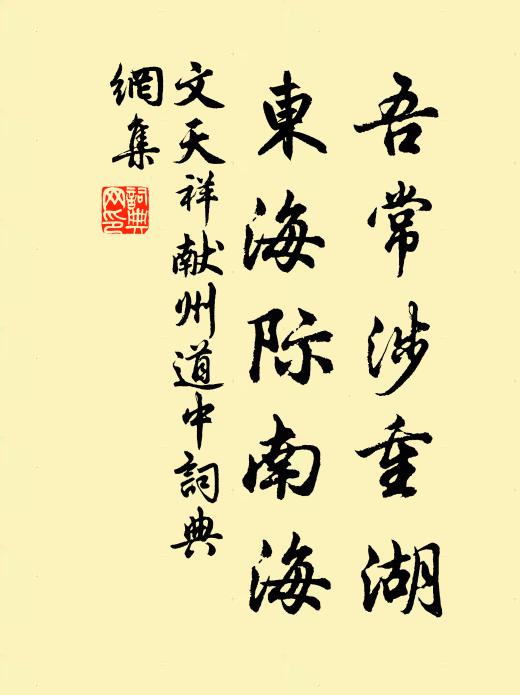 吾常涉重湖
東海际南海
文天祥献州道中詞典
網集
詞典網印